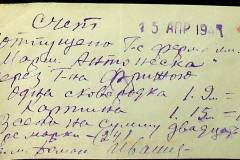 Счет 15 АПР 194
отпущено Т-с ферме им.
Марии Антонеска
через Т-на Фрижою
одна сковородка 1. 9м =
Картина 1. 15 =
Всего на сумму двадцат
ре марки - (24)